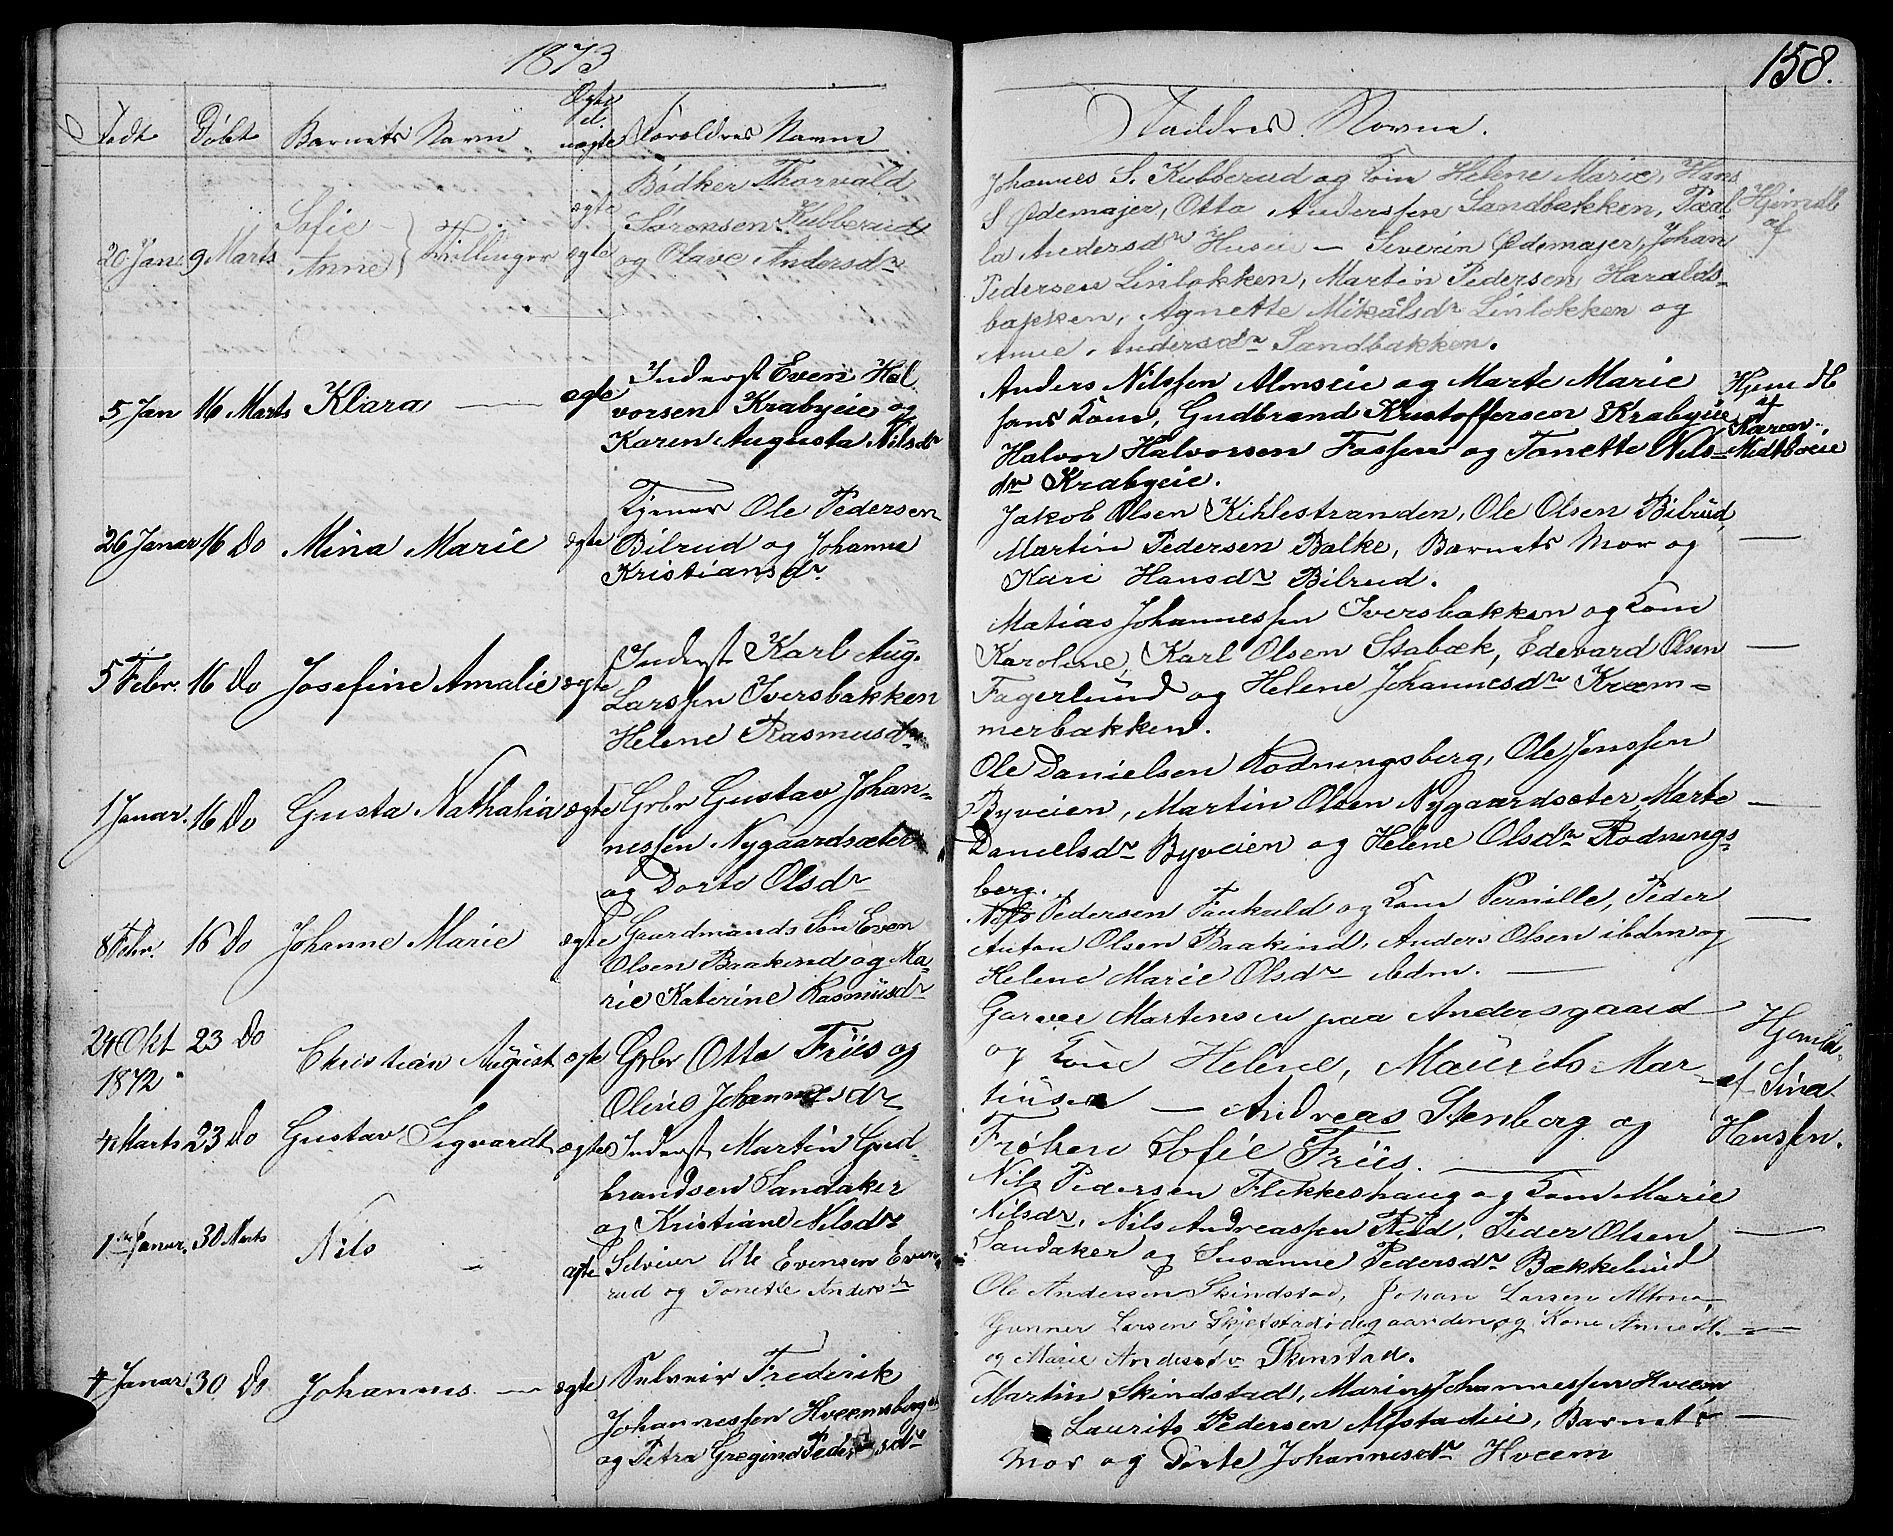 1873
158.
Født Døbt Barnets Navn Ægte el. uægte Foreldres Navne
Faddres Navne.
20 Jan 9 Marts Sofie Anne } Tvillinger ægte ægte
Bødker Thorvald
Sørensen Kubberud
og Olave Andersdr
Johannes S. Kubberud og Kone Helene Marie, Hans
S Ødemajer, Otto Anderssen Sandbakken, Paal
la Andersdr Huseie — Severin Ødemajer, Johan
Pedersen Linlokken, Martin Pedersen Haralds-
bakken, Agnette Mikalsdr Linlokken og
Anne Andersdr Sandbakken.
Hjemdb
af
5 Jan 16 Marts Klara — ægte
Inderst Even Hal
vorsen Krabyeie og
Karen Augusta Nilsdr
Anders Nilssen Almseie og Marte Marie
Jans Kone, Gudbrand Kristoffersen Krabyeie
Halvor Halvorsen Fossen og Tonette Nils-
dr Krabyeie.
Hjemdb
af
Karen
Midtbøeie
26 Januar 16 Do Mina Marie ægte
Tjener Ole Pedersen
Bilrud og Johanne
Kristiansdr
Jakob Olsen Kihlestranden, Ole Olsen Bilrud,
Martin Pedersen Balke, Barnets Mor og
Kari Hansdr Bilrud.
—
5 Febr. 16 Do Josefine Amalie ægte
Inderst Karl Aug.
Larssen Iversbakken
Helene Rasmusdr
Matias Johannessen Iversbakken og Kone
Karoline, Karl Olsen Stabæk, Edevard Olsen
Fagerlund og Helene Johannesdr Kræm-
merbakken.
—
1 Januar. 16 Do Gusta Nathalia ægte
Grbr Gustav Johan-
nessen Nygaardsæter
og Dorte Olsdr
Ole Danielsen Rodningsberg, Ole Jenssen
Byveien, Martin Olsen Nygaardsæter, Marte
Danielsdr Byveien og Helene Olsdr Rodnings-
berg.
—
8 Febr. 16 Do Johanne Marie ægte
Gaardmands Søn Even
Olsen Baakind og Ma-
rie Katerine Rasmusdr
Nils Pedersen Faukald og Kone Pernille, Peder
Anton Olsen Baakind, Anders Olsen ibdm og
Helene Marie Olsdr ibdm. —
—
24 Okt 1872 23 Do Christian August ægte
Grbr Otto Friis og
Oline Johannesdr
Garver Martinsen paa Andersgaard
og Kone Helene, Mauritz Mar-
tinsen — Andreas Stenberg og
Frøken Sofie Friis. —
Hjemdb.
af Sina
Hanssen.
4 Marts 23 Do Gustav Sigvardt ægte
Inderst Martin Gud-
brandsen Sandaker
og Kristiane Nilsdr
Nils Pedersen Flikkeshaug og Kone Marie
Nilsdr, Nils Andreassen Rud, Peder Olsen
Sandaker og Susanne Pedersdr Bækkelund
—
1ste Januar. 30 Marts Nils — ægte
Selveier Ole Evensen Even-
rud og Tonette Andersdr
Ole Andersen Skindstad, Johan Larsen Altona,
Gunner Larsen Skjelstadødegaarden og Kone Anne M.
og Marie Andersdr Skinstad.
—
4 Januar 30 Do Johannes — ægte
Selveier Frederik
Johannessen Hveemsberget
og Petra Gregine Pedersdr
Martin Skindstad, Marinus Johannessen Hveem,
Laurits Pedersen Mjstadeie, Barnets
Mor og Dorte Johannesdr Hveem
—